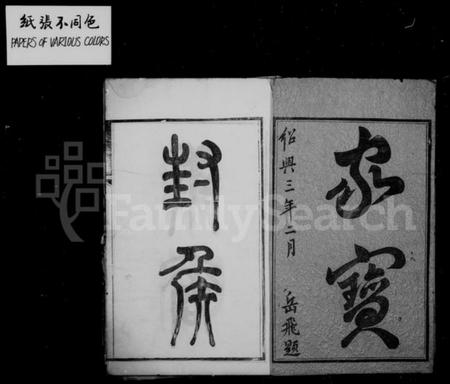 紙張不同色
PAPERS OF VARIOUS COLORS
家寶
紹興三年二月
岳飛題
封侯
FamilySearch